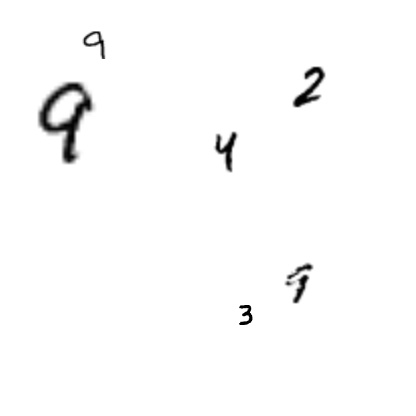 9
9
2
4
9
3